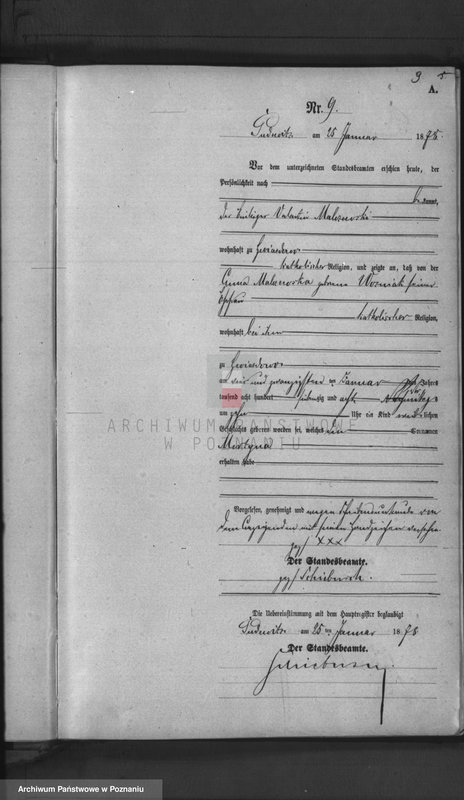 9
A.
Nr. 9.
Pudewitz am 25 Januar 1878
Vor dem unterzeichneten Standesbeamten erschien heute, der
Persönlichkeit nach
kannt,
der Valentin Malanowski
wohnhaft zu
katholischer Religion, und zeigte an, daß von der
Anna Malanowska geborene Wozniak seiner
Ehefrau
katholischer Religion,
wohnhaft bei ihm
zu
am vier und zwanzigsten ten Januar des Jahres
tausend acht hundert siebenzig und acht Vormittags
um zehn Uhr ein Kind weiblichen
Geschlechts geboren worden sei, welches den Vornamen
erhalten habe
Vorgelesen, genehmigt und wegen Schreibensunkunde von
dem Anzeigenden mit seinem Handzeichen versehen
gez/ XXX
Der Standesbeamte.
gez/
Die Uebereinstimmung mit dem Hauptregister beglaubigt
Pudewitz am 25 ten Januar 1878
Der Standesbeamte.
ARCHIWUM PAŃSTWOWE
W POZNANIU
Archiwum Państwowe w Poznaniu